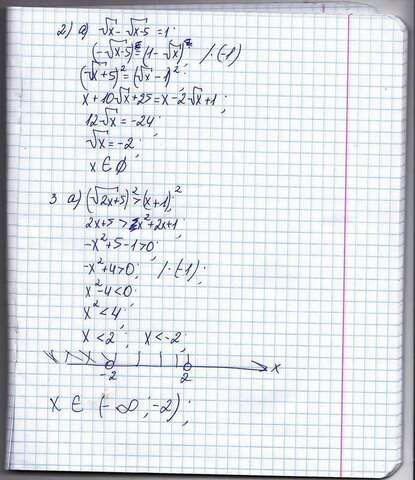 2) а) √x - √x-5 = 1;
(-√x-5)² = (1-√x)² /·(-1)
(√x+5)² = (√x-1)²;
x+10√x+25 = x-2√x+1;
12√x = -24;
√x = -2;
x ∈ ∅;
3 а) (√2x+5)² > (x+1)²;
2x+5 > x²+2x+1;
-x²+5-1>0;
-x²+4>0; /·(-1);
x²-4<0;
x²<4;
x<2; x<-2;
-2 2 x
x ∈ (-∞;-2);